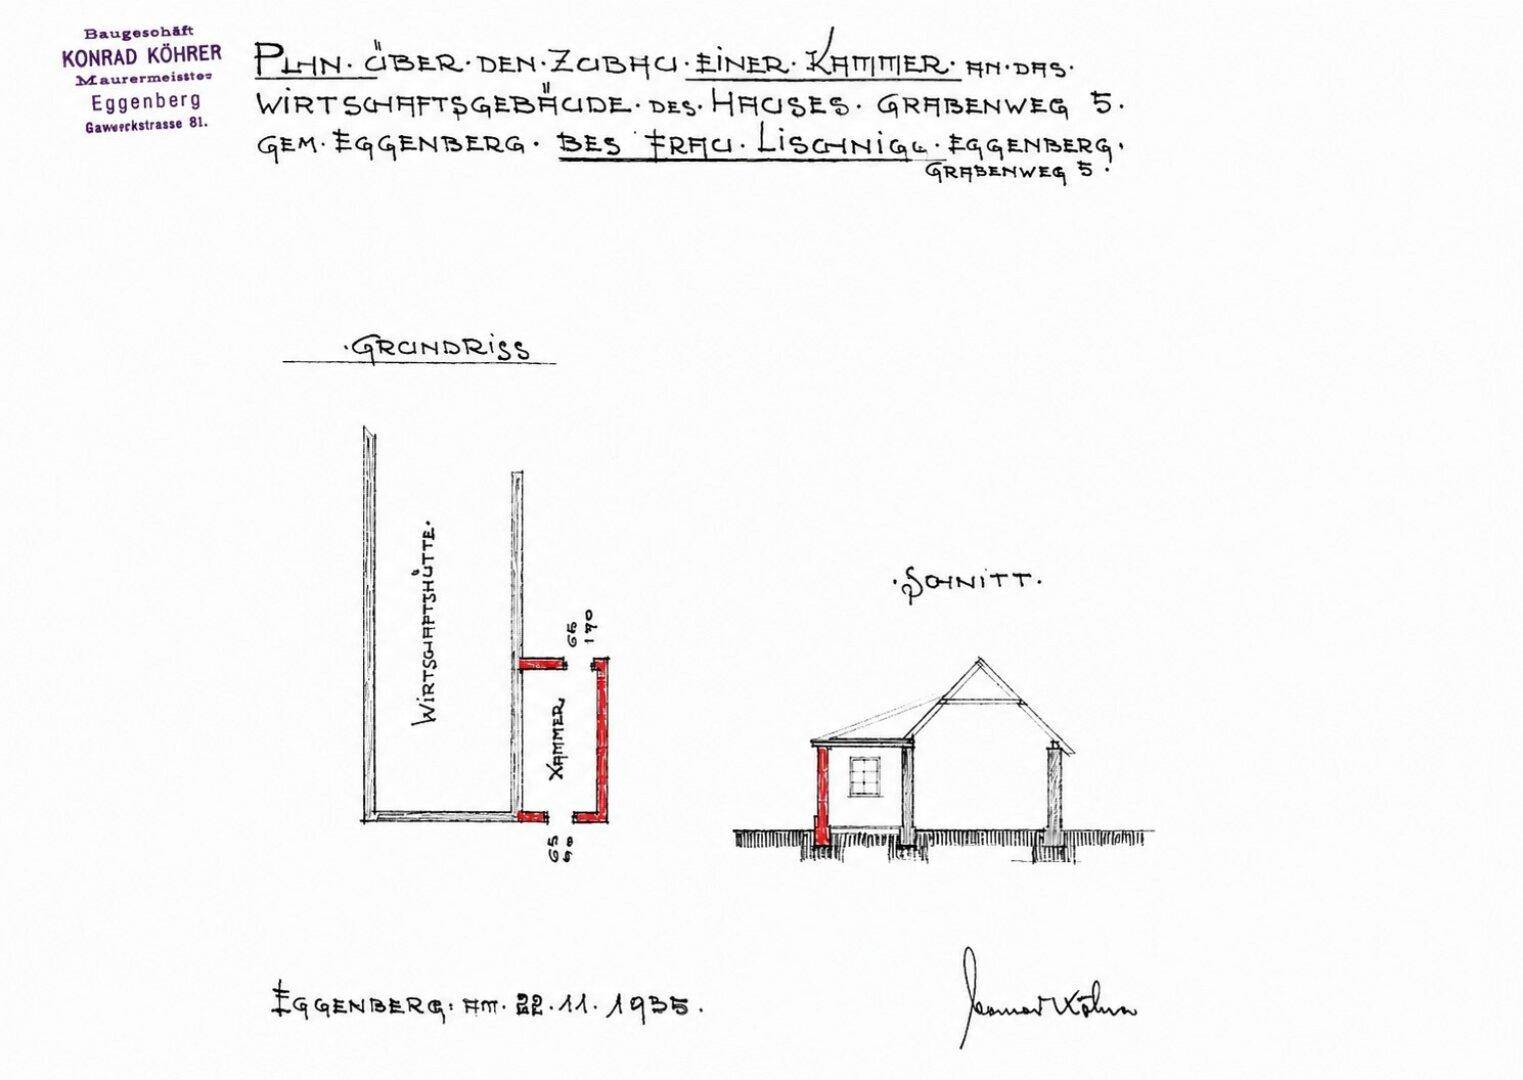 Baugeschäft
KONRAD KÖHRER
Maurermeister
Eggenberg
Gaswerkstrasse 81.
PLAN · ÜBER · DEN · ZUBAU · EINER · KAMMER · AN · DAS ·
WIRTSCHAFTSGEBÄUDE · DES · HAUSES · GRABENWEG 5 ·
GEM · EGGENBERG · BES FRAU · LISCHNIGG · EGGENBERG ·
GRABENWEG 5 ·
· GRUNDRISS
WIRTSCHAFTSHÜTTE ·
65
170
KAMMER
65
90
· SCHNITT ·
EGGENBERG : AM · 22 · 11 · 1935 .
Konrad Köhrer